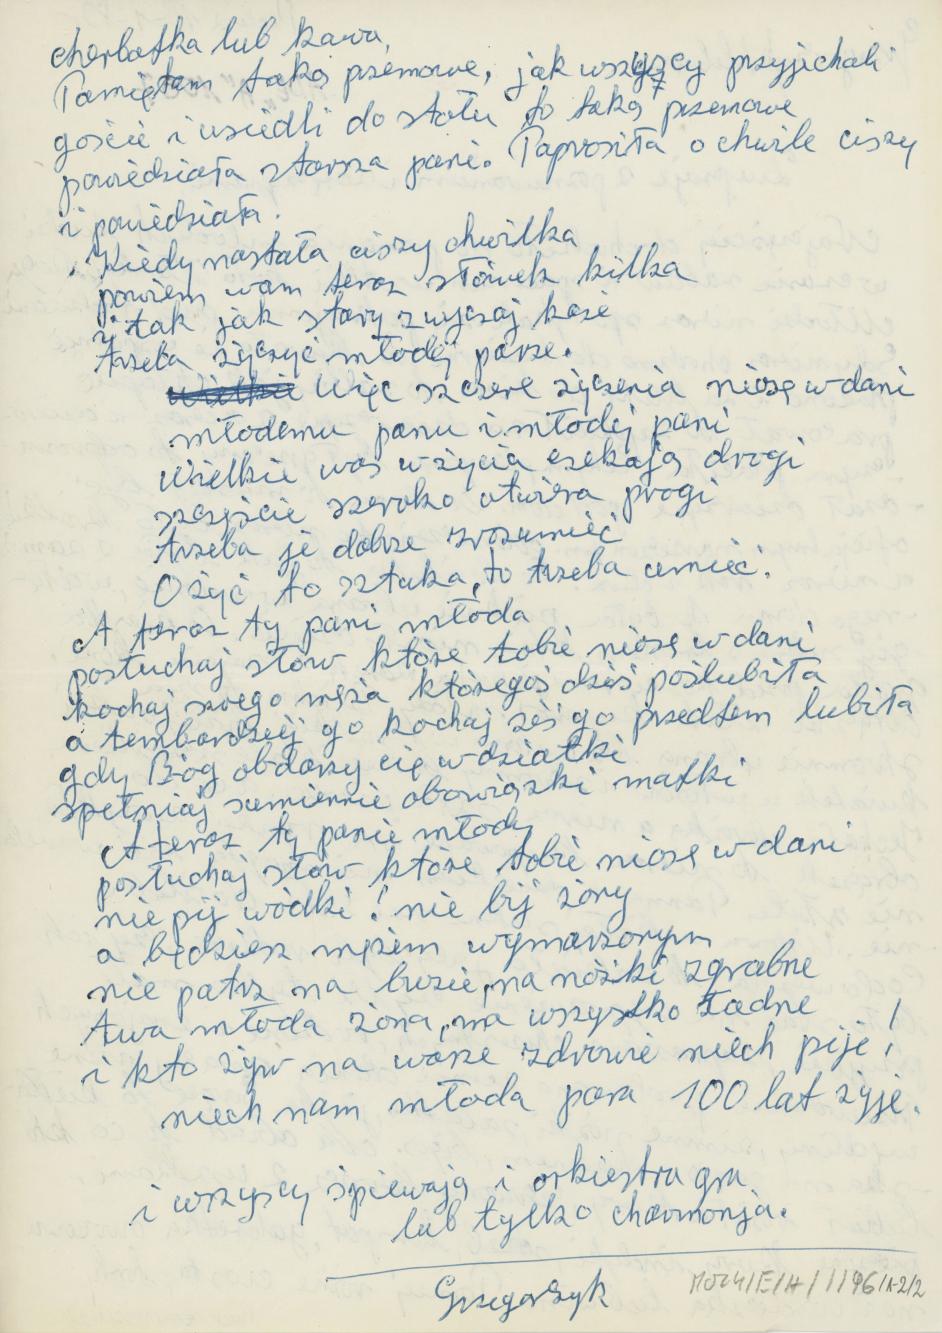 cherbatka lub kawa,
Pamiętam taką przemowe, jak wszyscy przyjichali
goście i usiedli do stołu to taką przemowe
powiedziała starsza pani. Paprosiła o chwile ciszy
i powiedziała.
Kiedy nastała ciszy chwilka
powiem wam teraz słówek kilka
i tak jak stary zwyczaj każe
trzeba życzyć młodej parze.
Więc szczere życzenia niosę w dani
młodemu panu i młodej pani
Wielkie was w życia czekają drogi
szczęście szeroko otwiera progi
trzeba je dobrze zrozumieć
O żyć to sztuka, to trzeba umieć.
A teraz ty pani młoda
posłuchaj słów które tobie niosę w dani
kochaj swego męża któregoś dziś poślubiła
a tembardziej go kochaj żeś go przedtem lubiła
gdy Bóg obdarzy cię w dziatki
spełniaj sumiennie obowiązki matki
A teraz ty panie młody
posłuchaj słów które tobie niosę w dani
nie pij wódki! nie bij żony
a będziesz mężem wymarzonym
nie patrz na buzie, na nóżki zgrabne
twa młoda żona, ma wszystko ładne
i kto żyw na wasze zdrowie niech pije!
niech nam młoda para 100 lat żyje.
i wszyscy śpiewają i orkiestra gra
lub tylko charmonja.
Grzegorzyk